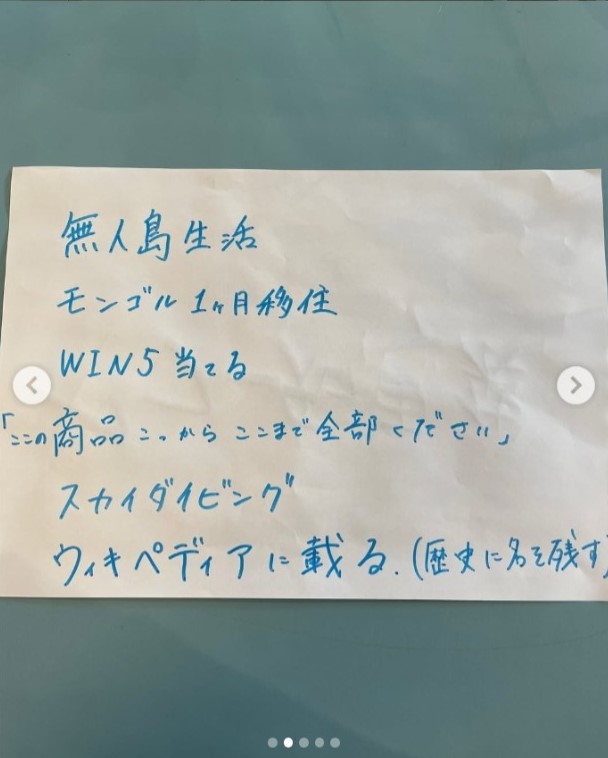 無人島生活
モンゴル1ヶ月移住
WIN5当てる
「ここの商品こっからここまで全部ください」
スカイダイビング
ウィキペディアに載る.(歴史に名を残す)